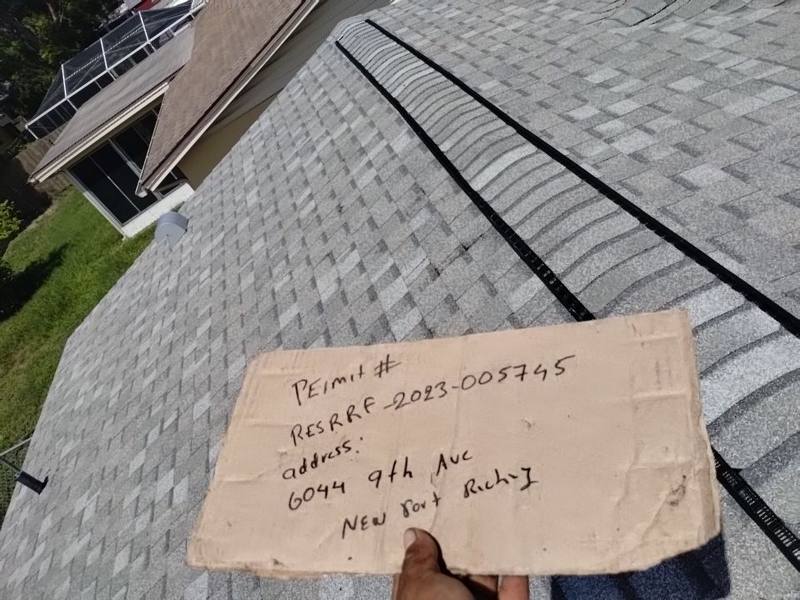 PErmit #
RESRRF-2023-005745
address:
6044 9th Ave
NEW Port Richey